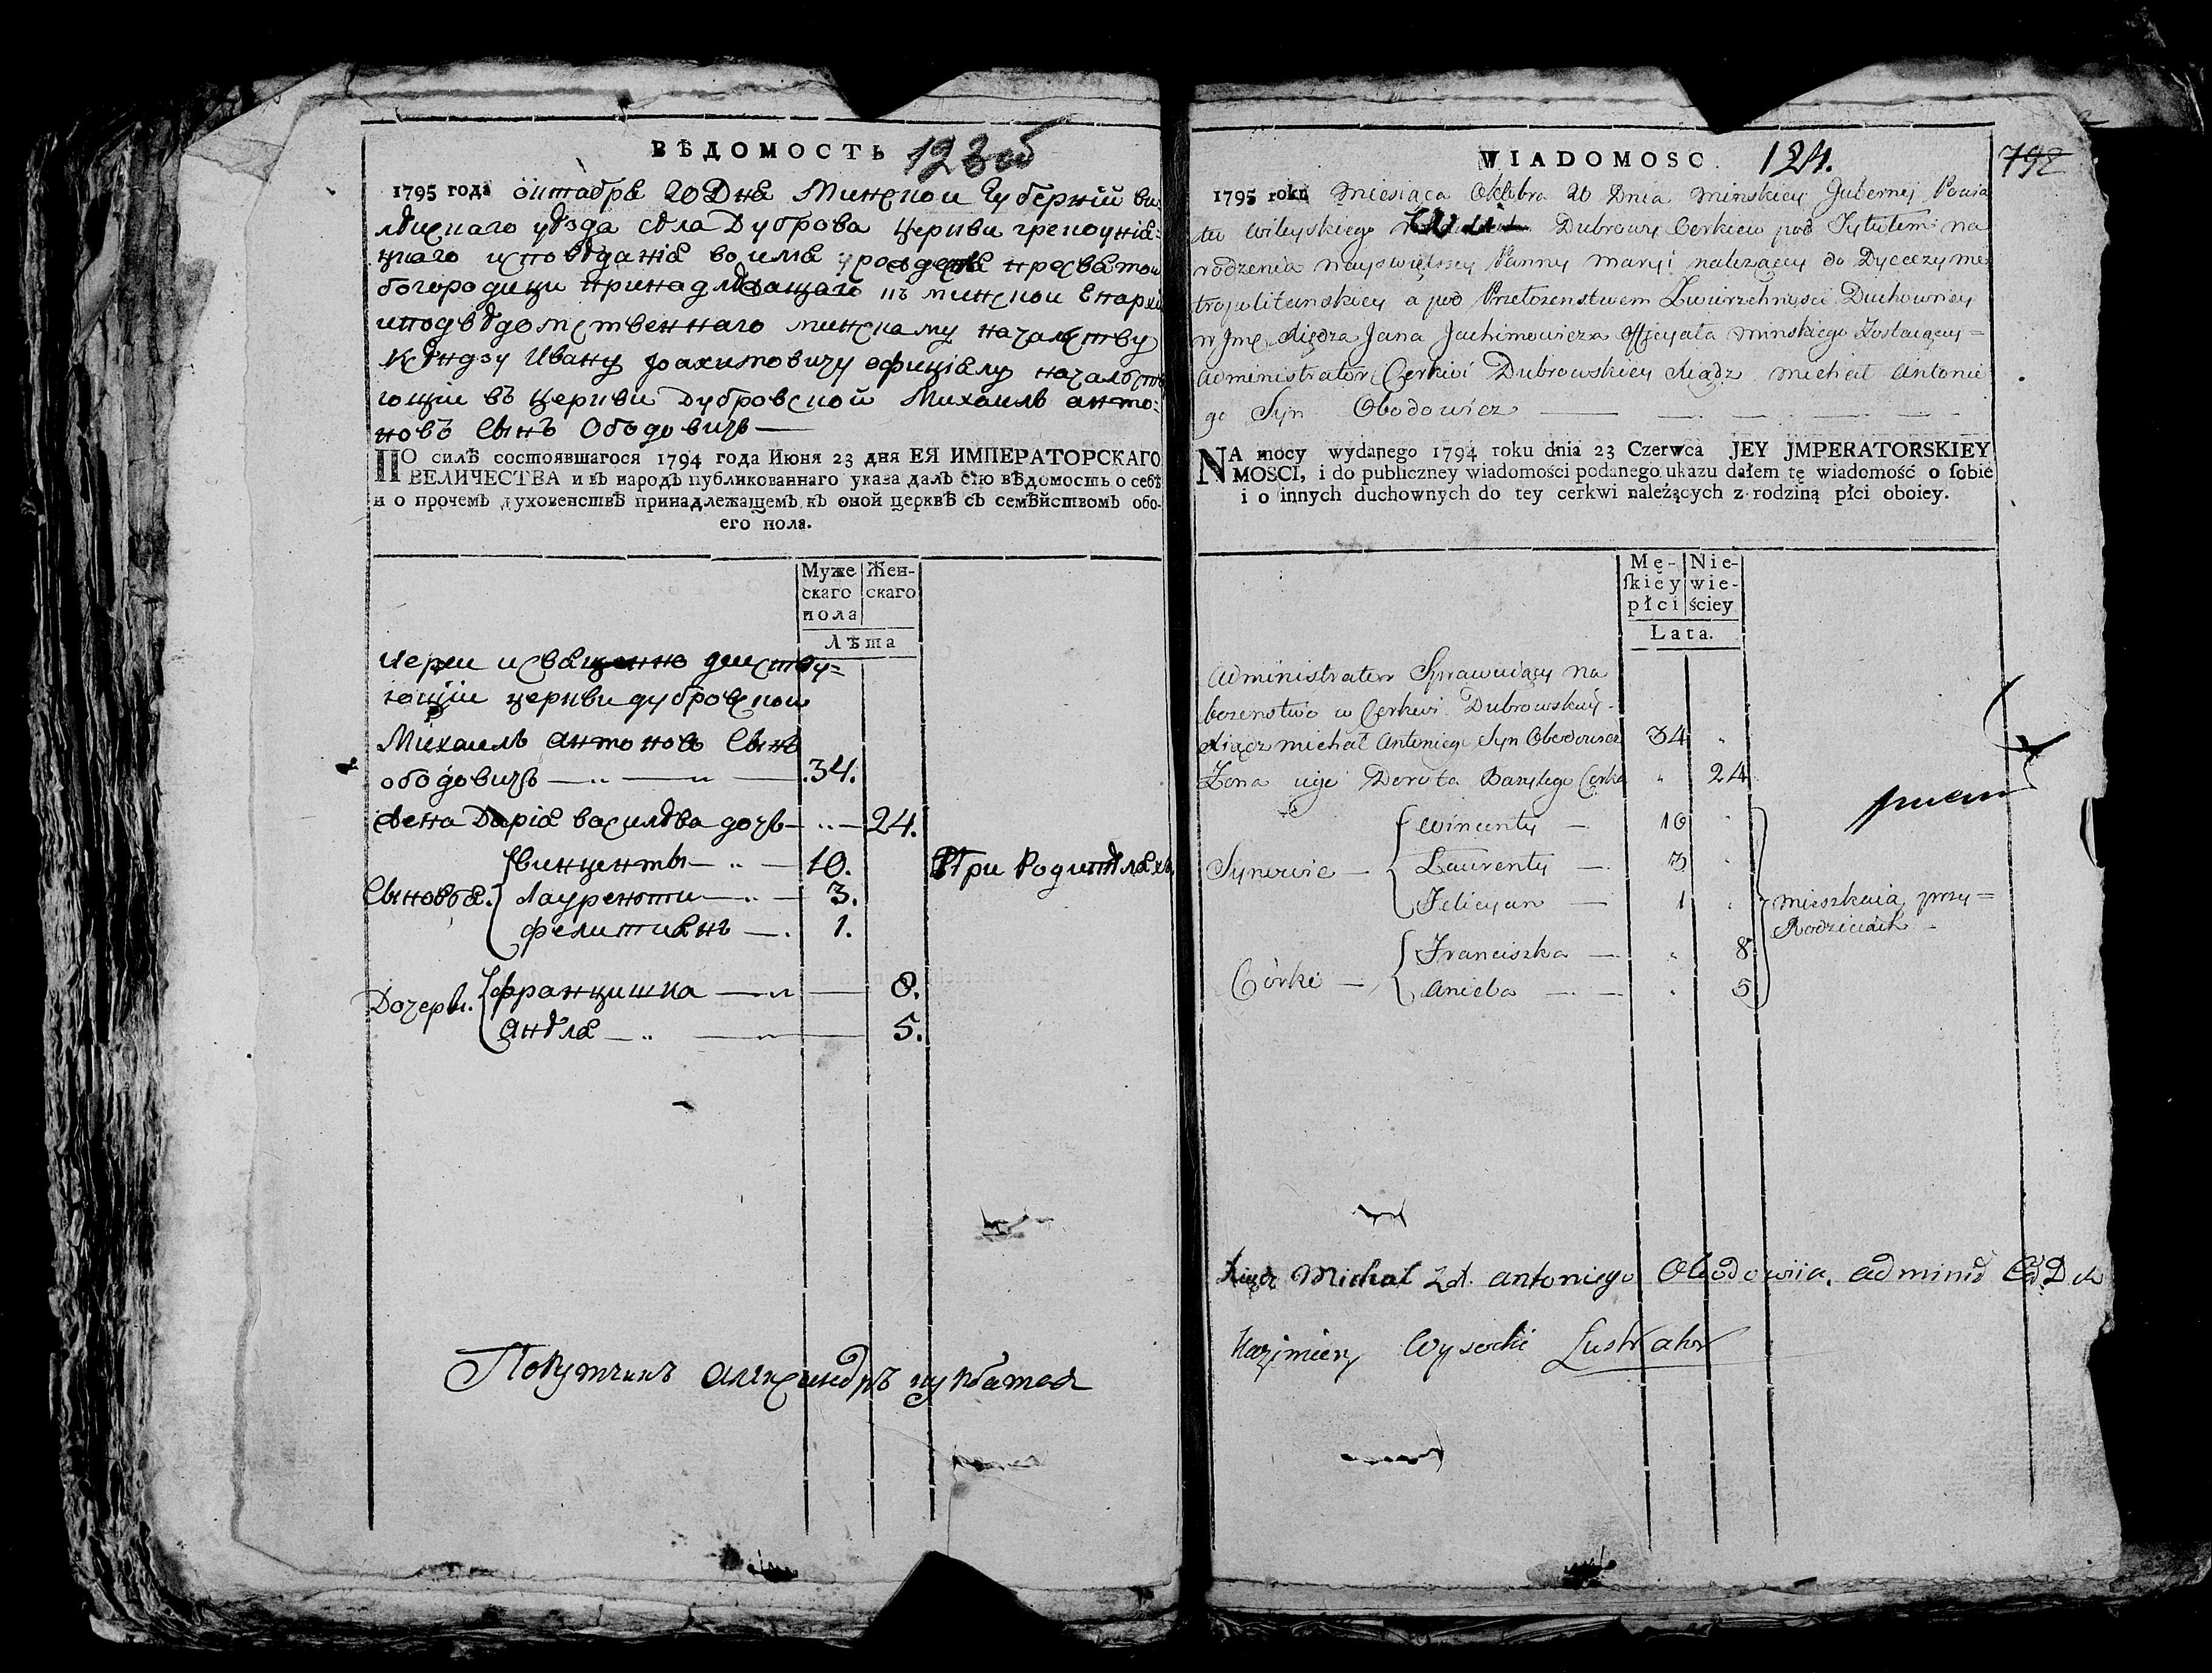 ВѢДОМОСТЬ 123об
1795 года октабра 20 Дна Минскои Губерніи ви
лѣискаго уѣзда села Дуброва церкви грекоуніа=
цкаго исповѣданія во има рождества пресватои
богородици принадлѣжащаи къ минскои Епархи
и подвѣдомственнаго минскому начальству
Ксѣндзу Ивану Яхимовичу офиціалу начальств
ющіи въ церкви Дубровскои Михаилъ анто=
новъ сынъ Ободовичъ
ПО силѣ состоявшагося 1794 года Июня 23 дня ЕЯ ИМПЕРАТОРСКАГО
ВЕЛИЧЕСТВА и въ народъ публикованнаго указа далъ сію вѣдомость о себѣ
и о прочемъ духовенствѣ принадлежащемъ къ оной церквѣ съ семѣйствомъ обо-
его пола.
Муже Жен-
скаго скаго
пола
Лѣта
иереи исващенно деиству=
ющіи церкви дубровскои
Михаилъ антоновъ Сынъ
ободовичъ 34.
жена Даріа василѣва дочь 24.
винценты 10. При Родителахъ
Сыновѣа Лауренти 3.
фелитианъ 1.
Дочери францишка 8.
Анѣла 5.
Порутчикъ александръ
WIADOMOSC. 124. 792
1795 roku miesiąca Oktobra 20 Dnia minskiey Gubernij Powia
tu wileyskiego Dubrowy Cerkiew pod Tytułem na
rodzenia nayswiętszey Panny maryi należący do Dyecezyi me
tropolitanskiey a pod Przełozenstwem Zwierzchnosci Duchowney
w Jmc Xiędza Jana Jachimowicza Officyała minskiego Zostaiącey=
administrator Cerkwi Dubrowskiey Xiądz michał Antonie
go Syn Obodowicz
NA mocy wydanego 1794 roku dnia 23 Czerwca JEY JMPERATORSKIEY
MOSCI, i do publiczney wiadomości podanego ukazu dałem tę wiadomość o sobie
i o innych duchownych do tey cerkwi należących z rodziną płci oboiey.
Mę- Nie-
skiey wie-
płci ściey
Lata.
Administrator Sprawuiący na
bozenstwo w Cerkwi Dubrowskiey
Xiądz michał Antoniego Syn Obodowicz 34
Zona iego Dorota Bazylego Corka 24
Wincenty 10
Synowie Laurenty 3
Felicyan 1 mieszkaią przy=
Rodzicach
Franciszka 8
Córki Aniela 5
Xiądz Michał Antoniego Obodowicz
Kazimierz Wysocki Lustrator